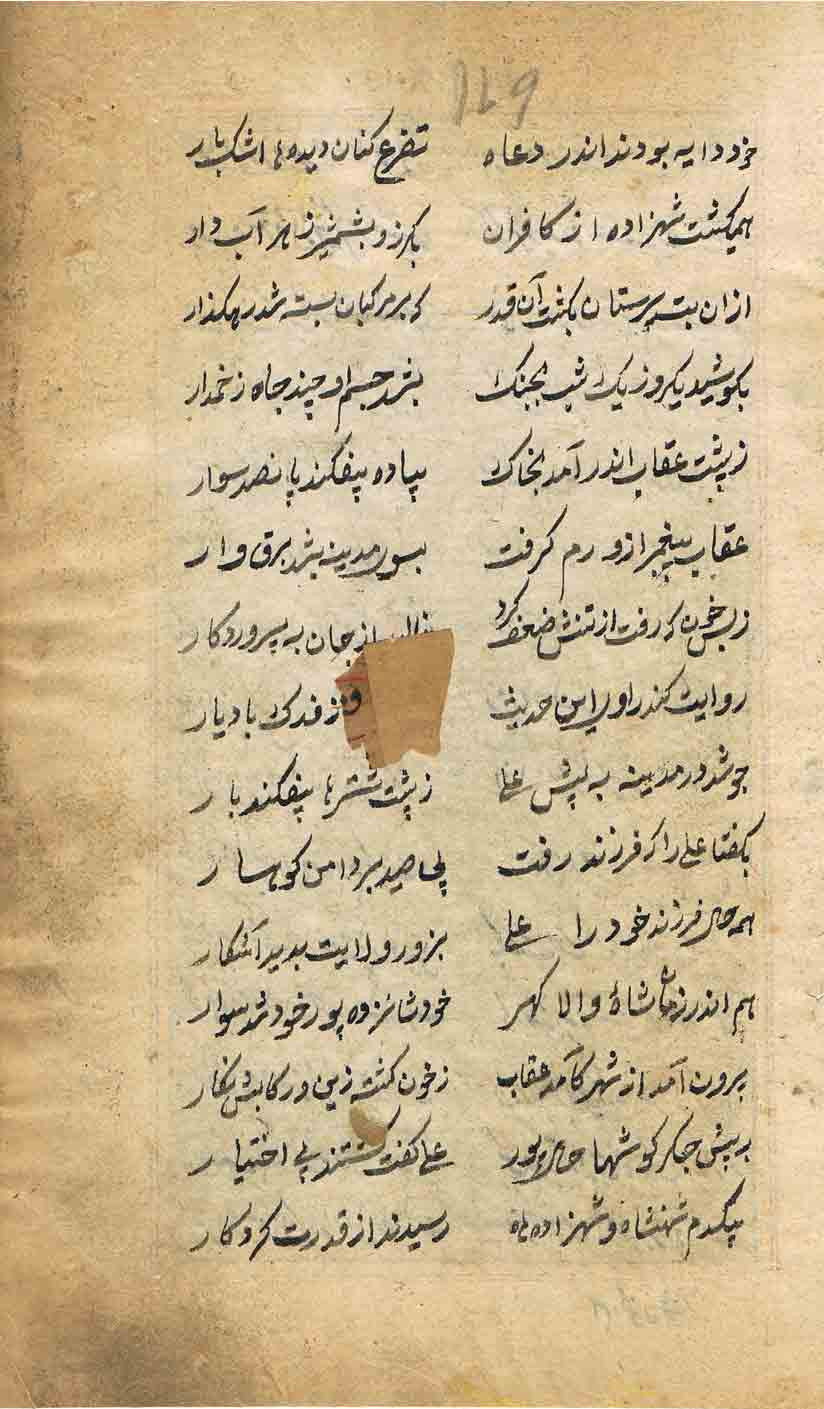 ۱۶۹
خود دایه بودند اندر دعاه تضرع کنان دیده ها اشک بار
همیکشت شهزاده از کافران بکرز و بشمشیر زهر آب دار
ازان بت پرستان بکشت آن قدر که بر مرکبان بسته شد رهکذار
بکوشید یکروز یک شب بجنک بشد جسم او چند جاه زخمدار
ز پشت عقاب اندر آمد بخاک پیاده بیفکند پانصد سوار
عقاب پیغمبر ازو رم کرفت بسوی مدینه بشد برق وار
ز بس خون که رفت از تنش ضعف کرد از جان به پروردکار
روایت کند راوی این حدیث ز فدک با دیار
چو شد در مدینه به پیش علی ز پشت شترها بیفکند بار
بکفتا علی را که فرزند رفت پی صید بر دامن کوهسار
همه حال فرزند خود را علی بزور ولایت بدید آشکار
هم اندر زمان شاه والا کهر خود شانزده پور خود شد سوار
برون آمد از شهر کآمد عقاب ز خون کشته زین و رکابش نکار
علی کفت کشتند بی اختیار
بیکدم شهنشاه و شهزاده ها رسیدند از قدرت کردکار